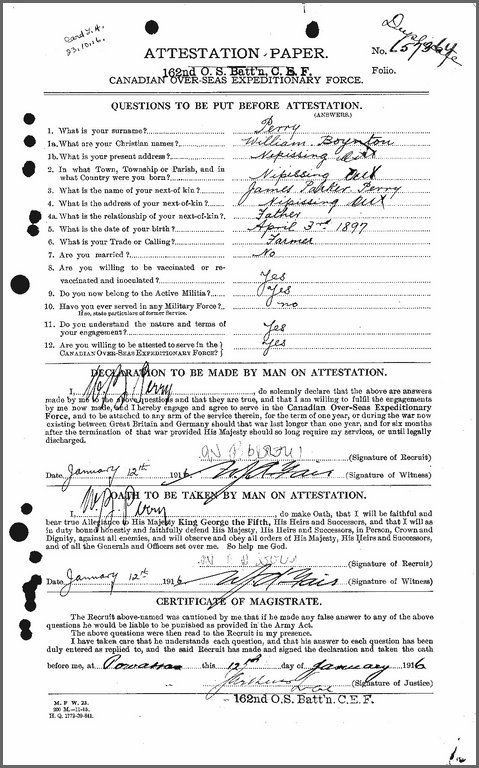 Card I. A.
23.10.16.
Duplicate
ATTESTATION PAPER.
No.
162nd O. S. Batt'n, C. E. F.
Folio.
CANADIAN OVER-SEAS EXPEDITIONARY FORCE.
QUESTIONS TO BE PUT BEFORE ATTESTATION.
(ANSWERS.)
1. What is your surname? Perry
1a. What are your Christian names? William Boynton
1b. What is your present address? Nipissing Ont
2. In what Town, Township or Parish, and in
what Country were you born? Nipissing Ont
3. What is the name of your next-of-kin? James Parker Perry
4. What is the address of your next-of-kin? Nipissing Ont
4a. What is the relationship of your next-of-kin? Father
5. What is the date of your birth? April 3rd 1897
6. What is your Trade or Calling? Farmer
7. Are you married? No
8. Are you willing to be vaccinated or re-
vaccinated and inoculated? Yes
9. Do you now belong to the Active Militia? Yes
10. Have you ever served in any Military Force? no
If so, state particulars of former Service.
11. Do you understand the nature and terms of
your engagement? Yes
12. Are you willing to be attested to serve in the
CANADIAN OVER-SEAS EXPEDITIONARY FORCE? Yes
DECLARATION TO BE MADE BY MAN ON ATTESTATION.
I, W. B. Perry, do solemnly declare that the above are answers
made by me to the above questions and that they are true, and that I am willing to fulfil the engagements
by me now made, and I hereby engage and agree to serve in the Canadian Over-Seas Expeditionary
Force, and to be attached to any arm of the service therein, for the term of one year, or during the war now
existing between Great Britain and Germany should that war last longer than one year, and for six months
after the termination of that war provided His Majesty should so long require my services, or until legally
discharged.
(Signature of Recruit)
Date January 12th 1916 (Signature of Witness)
OATH TO BE TAKEN BY MAN ON ATTESTATION.
I, W. B. Perry, do make Oath, that I will be faithful and
bear true Allegiance to His Majesty King George the Fifth, His Heirs and Successors, and that I will as
in duty bound honestly and faithfully defend His Majesty, His Heirs and Successors, in Person, Crown and
Dignity, against all enemies, and will observe and obey all orders of His Majesty, His Heirs and Successors,
and of all the Generals and Officers set over me. So help me God.
(Signature of Recruit)
Date January 12th 1916 (Signature of Witness)
CERTIFICATE OF MAGISTRATE.
The Recruit above-named was cautioned by me that if he made any false answer to any of the above
questions he would be liable to be punished as provided in the Army Act.
The above questions were then read to the Recruit in my presence.
I have taken care that he understands each question, and that his answer to each question has been
duly entered as replied to, and the said Recruit has made and signed the declaration and taken the oath
before me, at Powassan this 12th day of January 1916
(Signature of Justice)
162nd O.S. Batt'n. C.E.F.
M. F. W. 23.
200 M.—11-15.
H. Q. 1772-39-841.